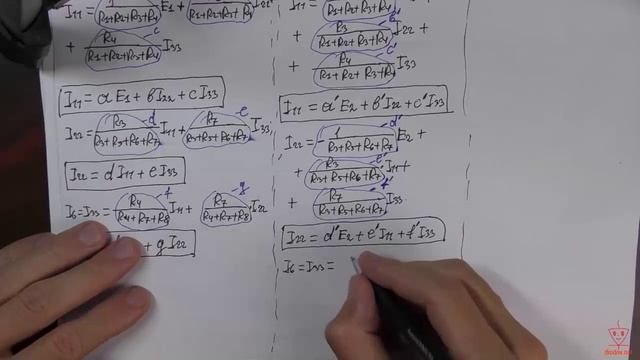 I11 = 1/(R1+R2+R3+R4) E1 + /(R1+R2+R3+R4) I22
+ R4/(R1+R2+R3+R4) I33 c
I11 = aE1 + bI22 + cI33
I22 = R3/(R3+R5+R6+R7) I11 + R7/(R3+R5+R6+R7) I33, d e
I22 = dI11 + eI33
I6 = I33 = R4/(R4+R7+R8) I11 + R7/(R4+R7+R8) I22 f g
+ gI22
I11 = /(R1+R2+R3+R4)
+ R3/(R1+R2+R3+R4) I22 + b'
+ R4/(R1+R2+R3+R4) I33 c'
I11 = a'E2 + b'I22 + c'I33
I22 = - 1/(R3+R5+R6+R7) E2 + d'
+ R3/(R3+R5+R6+R7) I11 + e'
+ R7/(R3+R5+R6+R7) I33 f'
I22 = d'E2 + e'I11 + f'I33
I6 = I33 =